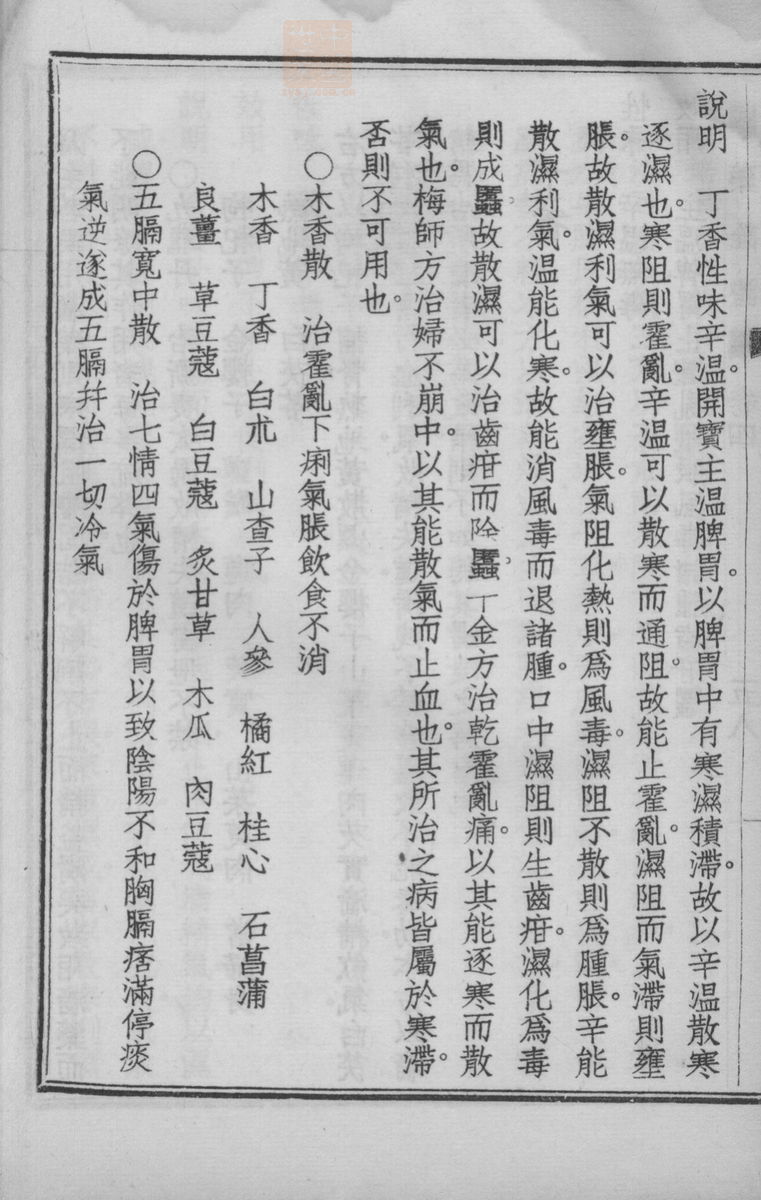 說明　丁香性味辛温。開寶主温脾胃。以脾胃中有寒濕積滯。故以辛温散寒
逐濕也。寒阻則霍亂。辛温可以散寒而通阻。故能止霍亂。濕阻而氣滯則壅
脹。故散濕利氣可以治壅脹。氣阻化熱則爲風毒。濕阻不散則爲腫脹。辛能
散濕利氣。温能化寒。故能消風毒而退諸腫。口中濕阻則生齒疳。濕化爲毒
則成䘌。故散濕可以治齒疳而除䘌。金方治乾霍亂痛。以其能逐寒而散
氣也。梅師方治婦不崩中。以其能散氣而止血也。其所治之病皆屬於寒滯。
否則不可用也。
〇木香散　治霍亂下痢氣脹飲食不消
木香　丁香　白朮　山查子　人參　橘紅　桂心　石菖蒲
良薑　草豆蔻　白豆蔻　炙甘草　木瓜　肉豆蔻
〇五膈寬中散　治七情四氣傷於脾胃以致陰陽不和胸膈痞滿停痰
氣逆遂成五膈幷治一切冷氣